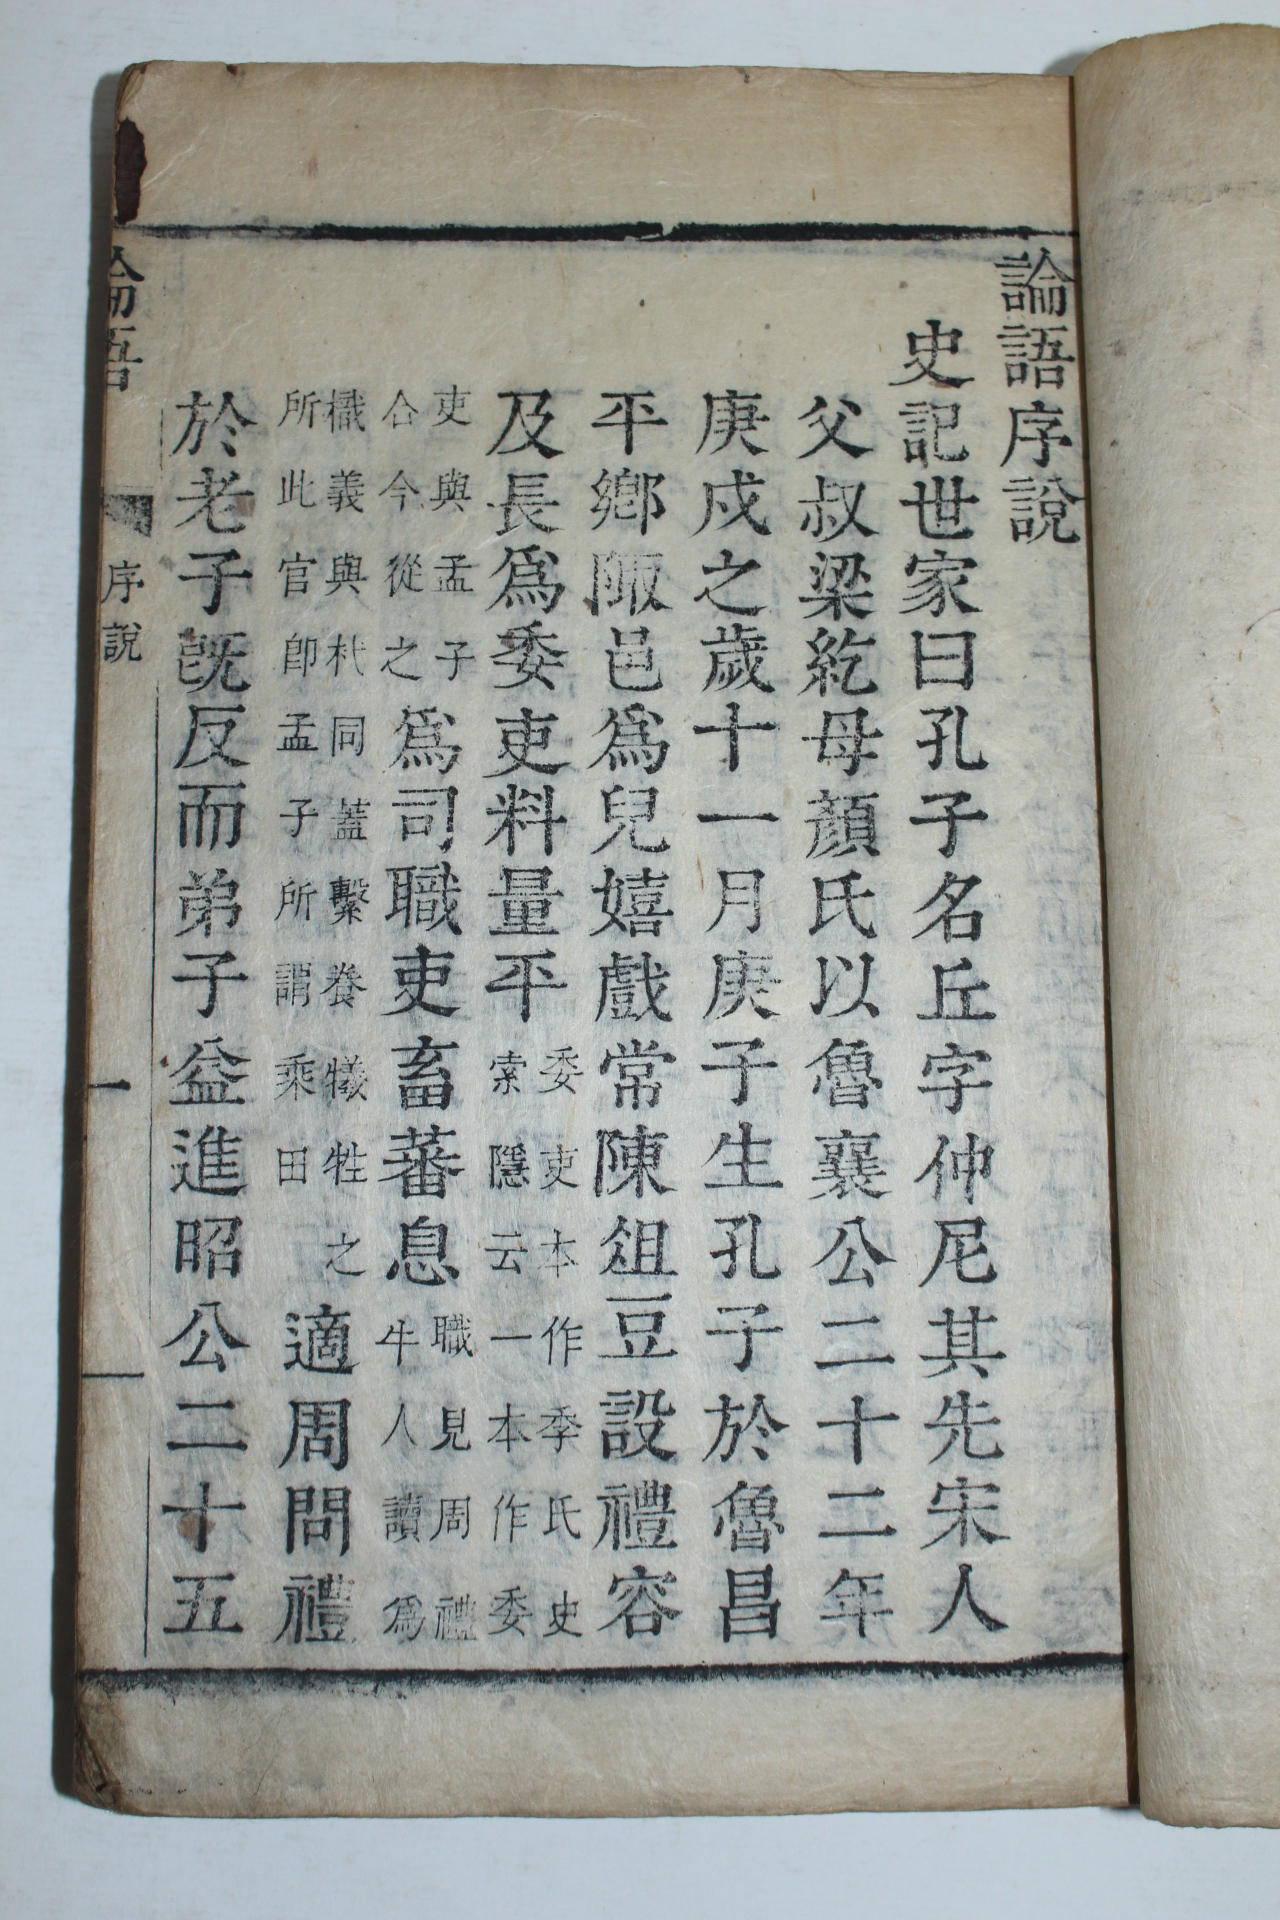 論語序說
史記世家曰孔子名丘字仲尼其先宋人
父叔梁紇母顔氏以魯襄公二十二年
庚戍之歲十一月庚子生孔子於魯昌
平鄕陬邑爲兒嬉戲常陳俎豆設禮容
及長爲委吏料量平委吏本作季氏史索隱云一本作委
吏與孟子合今從之爲司職吏畜蕃息職見周禮牛人讀爲
樴義與杙同蓋繫養犧牲之所此官卽孟子所謂乘田適周問禮
於老子旣反而弟子益進昭公二十五
論語
序說
一